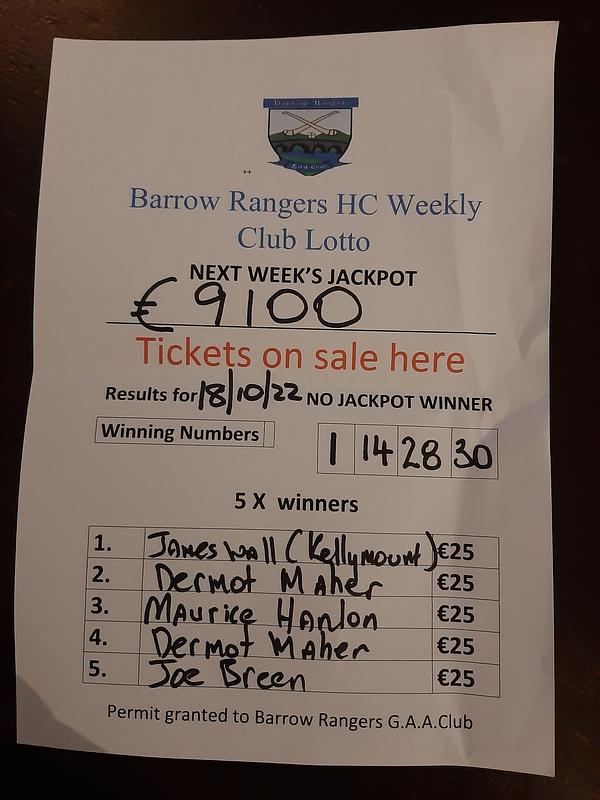 Barrow Rangers
++
Barrow Rangers HC Weekly
Club Lotto
NEXT WEEK'S JACKPOT
€ 9100
Tickets on sale here
Results for 18/10/22 NO JACKPOT WINNER
Winning Numbers 1 14 28 30
5 X winners
1. James Wall (Kellymount) €25
2. Dermot Maher €25
3. Maurice Hanlon €25
4. Dermot Maher €25
5. Joe Breen €25
Permit granted to Barrow Rangers G.A.A.Club